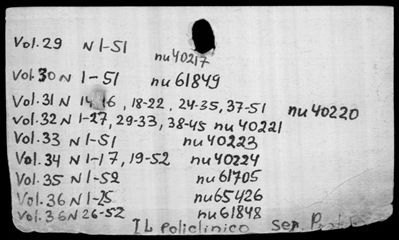 Vol.29 N 1-51 nu40217
Vol.30 N 1-51 nu 61849
Vol.31 N 14-16, 18-22, 24-35, 37-51 nu 40220
Vol.32 N 1-27, 29-33, 38-45 nu 40221
Vol.33 N 1-51 nu 40223
Vol.34 N 1-17, 19-52 nu 40224
Vol.35 N 1-52 nu 61705
Vol.36 N 1-25 nu65426
Vol.36 N 26-52 nu 61848
IL Policlinico sez.